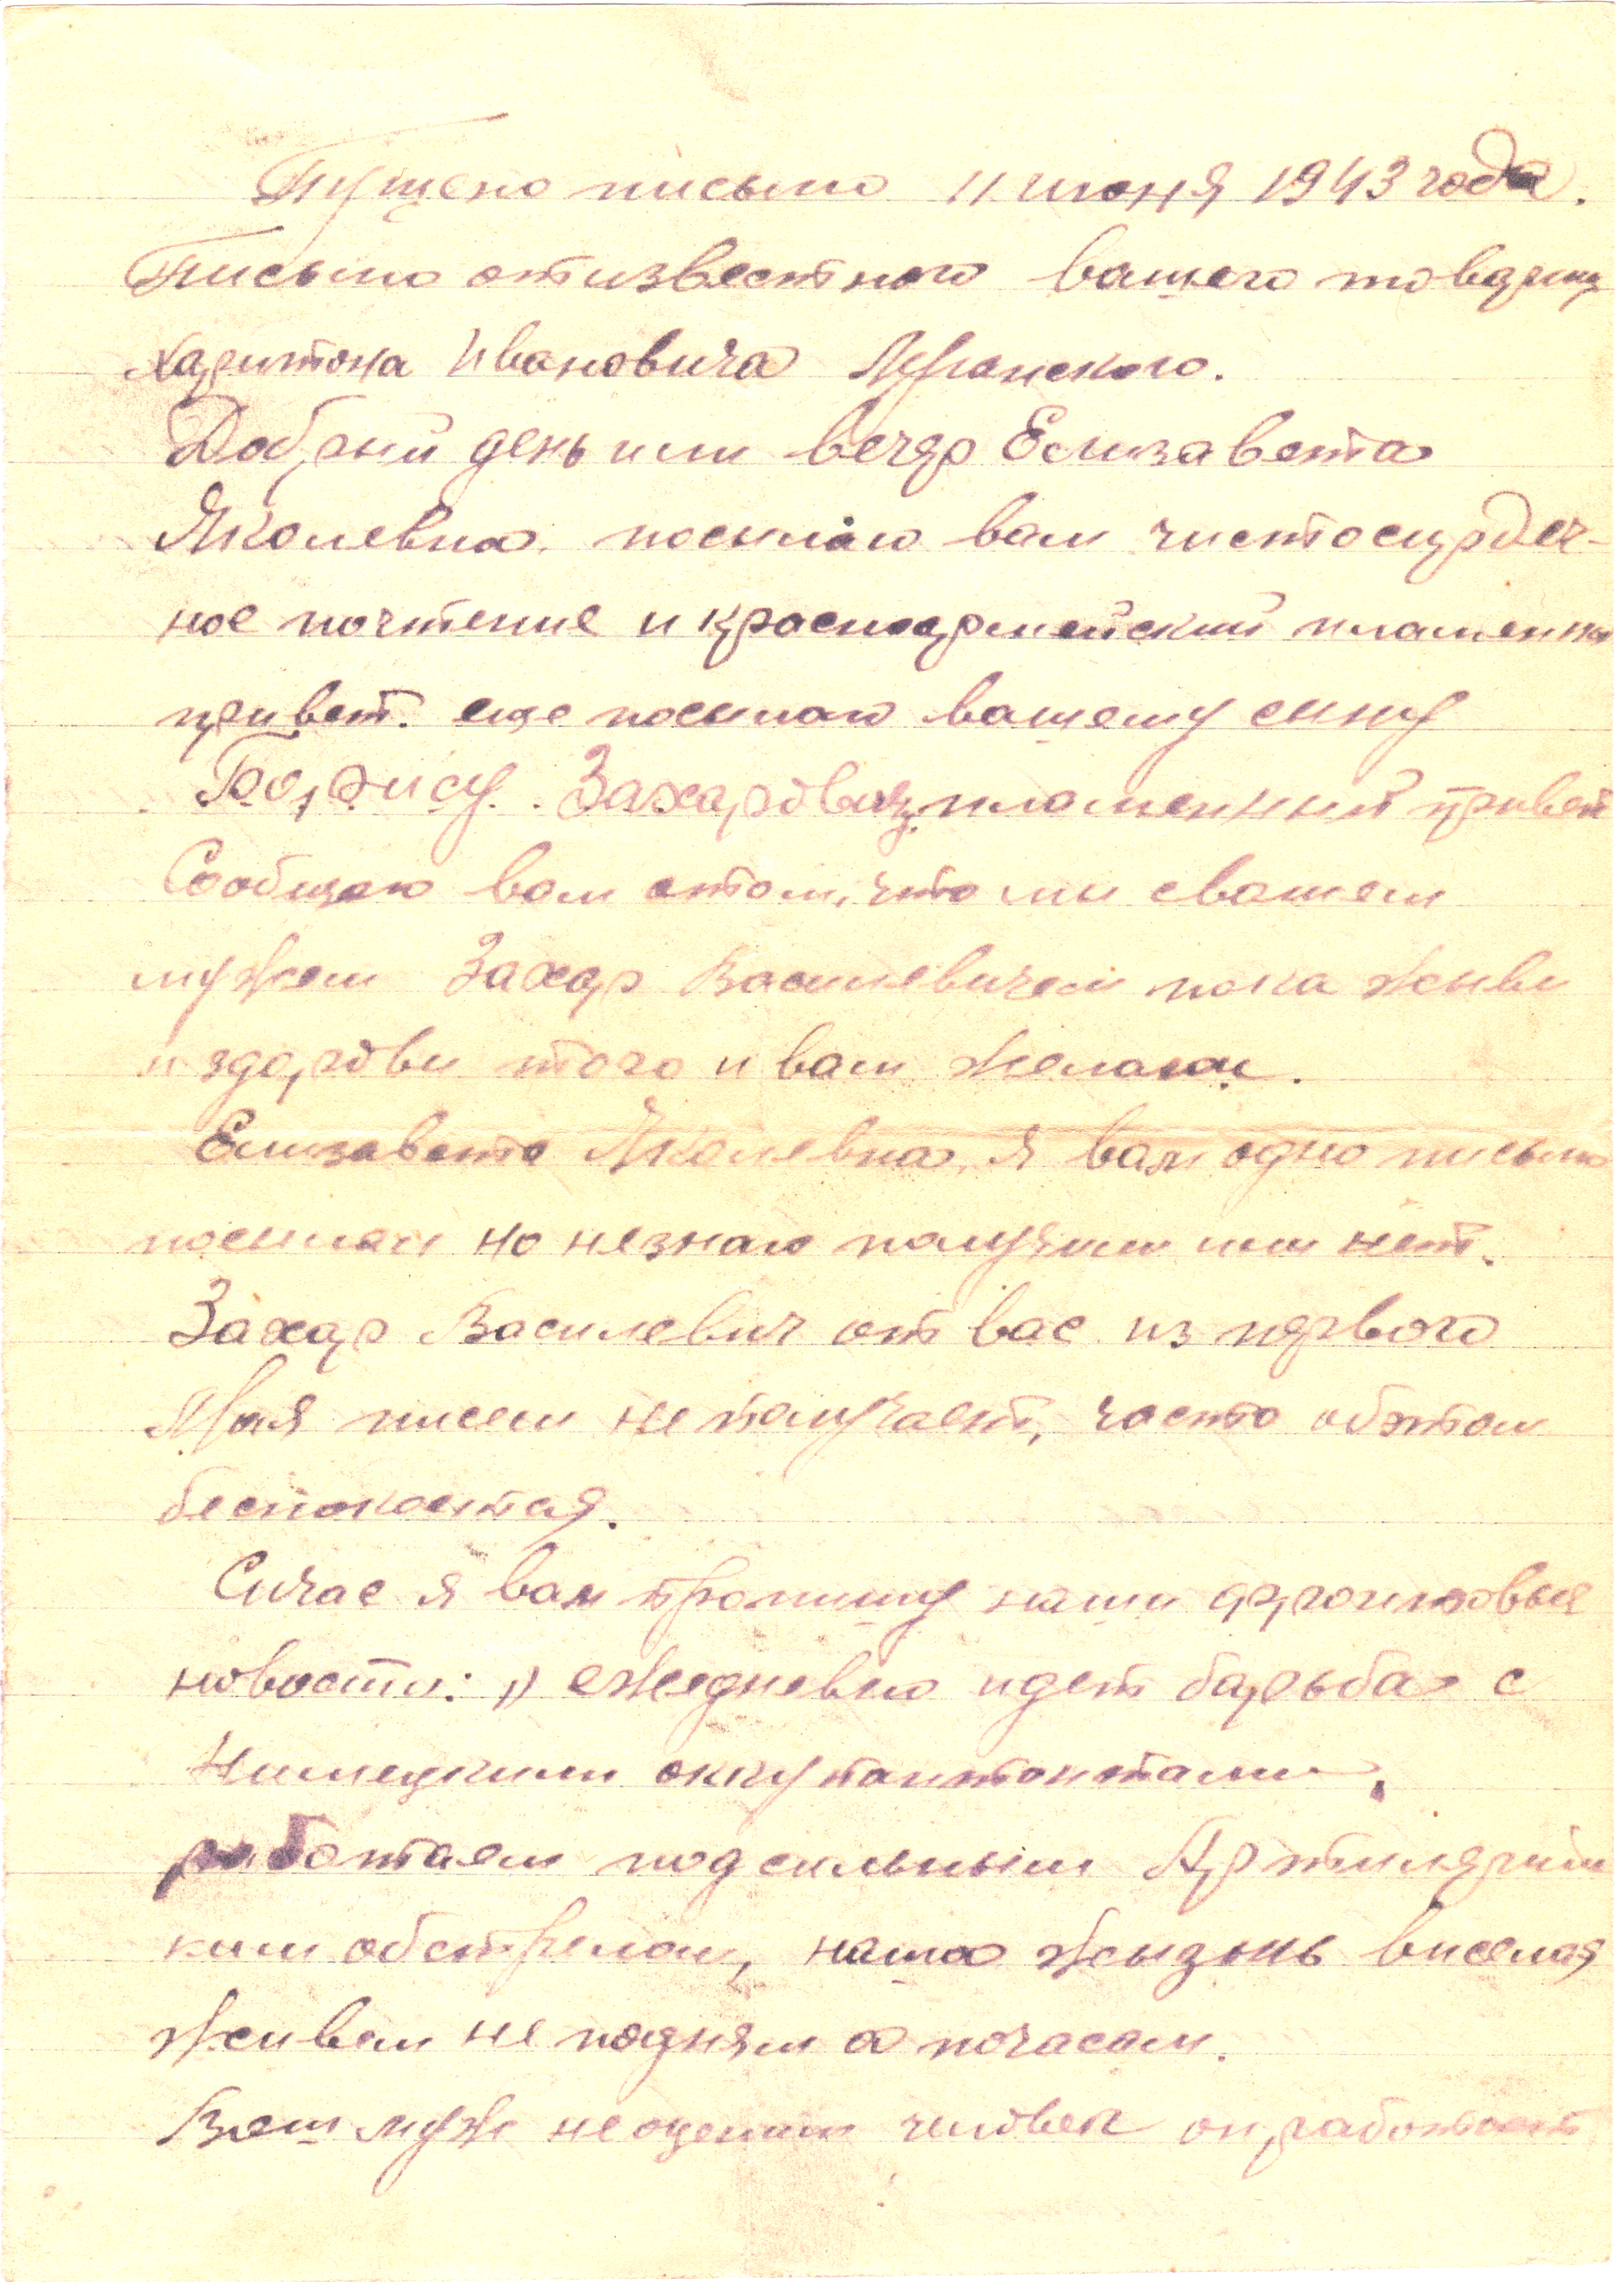 Пущено письмо 11 июня 1943 года.
Письмо от известного вашего товарищ
Харитона Ивановича
Добрый день или вечер Елизавета
Яколевна. посылаю вам чистосердеч-
ное почтение и красноармейский пламенны
привет. еще посылаю вашему сину
Борису. Захаровичу пламенный привет
Сообщаю вам отом, что ми свашем
мужем Захар Василевичем пока живи
и здорови того и вам желаем.
Елизавета Яколевна, я вам одно письмо
посилал но незнаю получили или нет.
Захар Василевич от вас из первого
Мая писем не получает, часто обэтом
беспокоится.
Сичас я вам пропишу наши фронтовые
новости: 1) ежедневно идет барьба с
Нимецкими
работаем под сильным Артилериис
ким обстрелом, наша жызнь виселая
живем не подням а почасам.
Ваш муж неоценим человек он работает